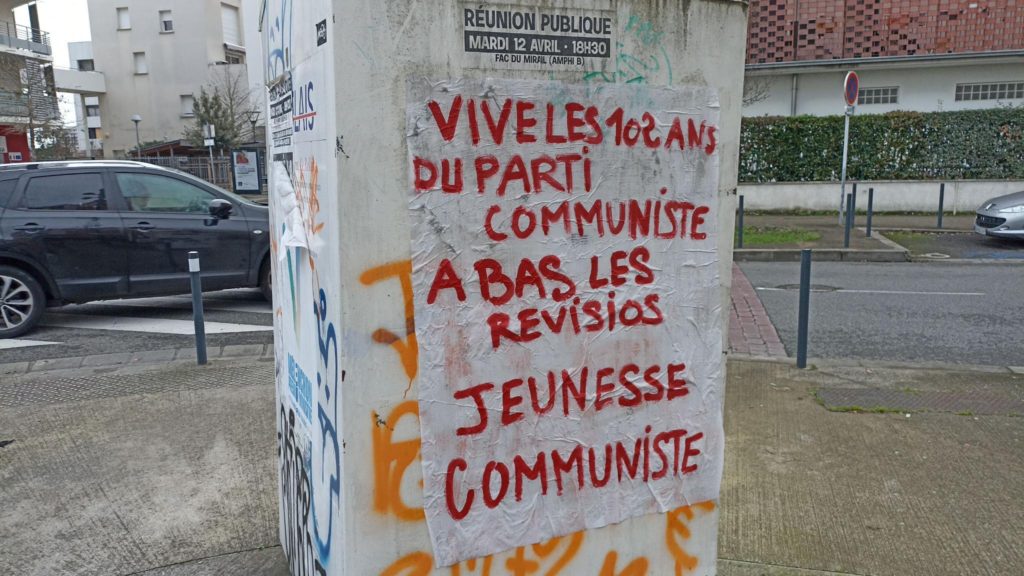 RÉUNION PUBLIQUE
MARDI 12 AVRIL · 18H30
FAC DU MIRAIL (AMPHI B)
VIVE LES 102 ANS
DU PARTI
COMMUNISTE
A BAS LES
REVISIOS
JEUNESSE
COMMUNISTE